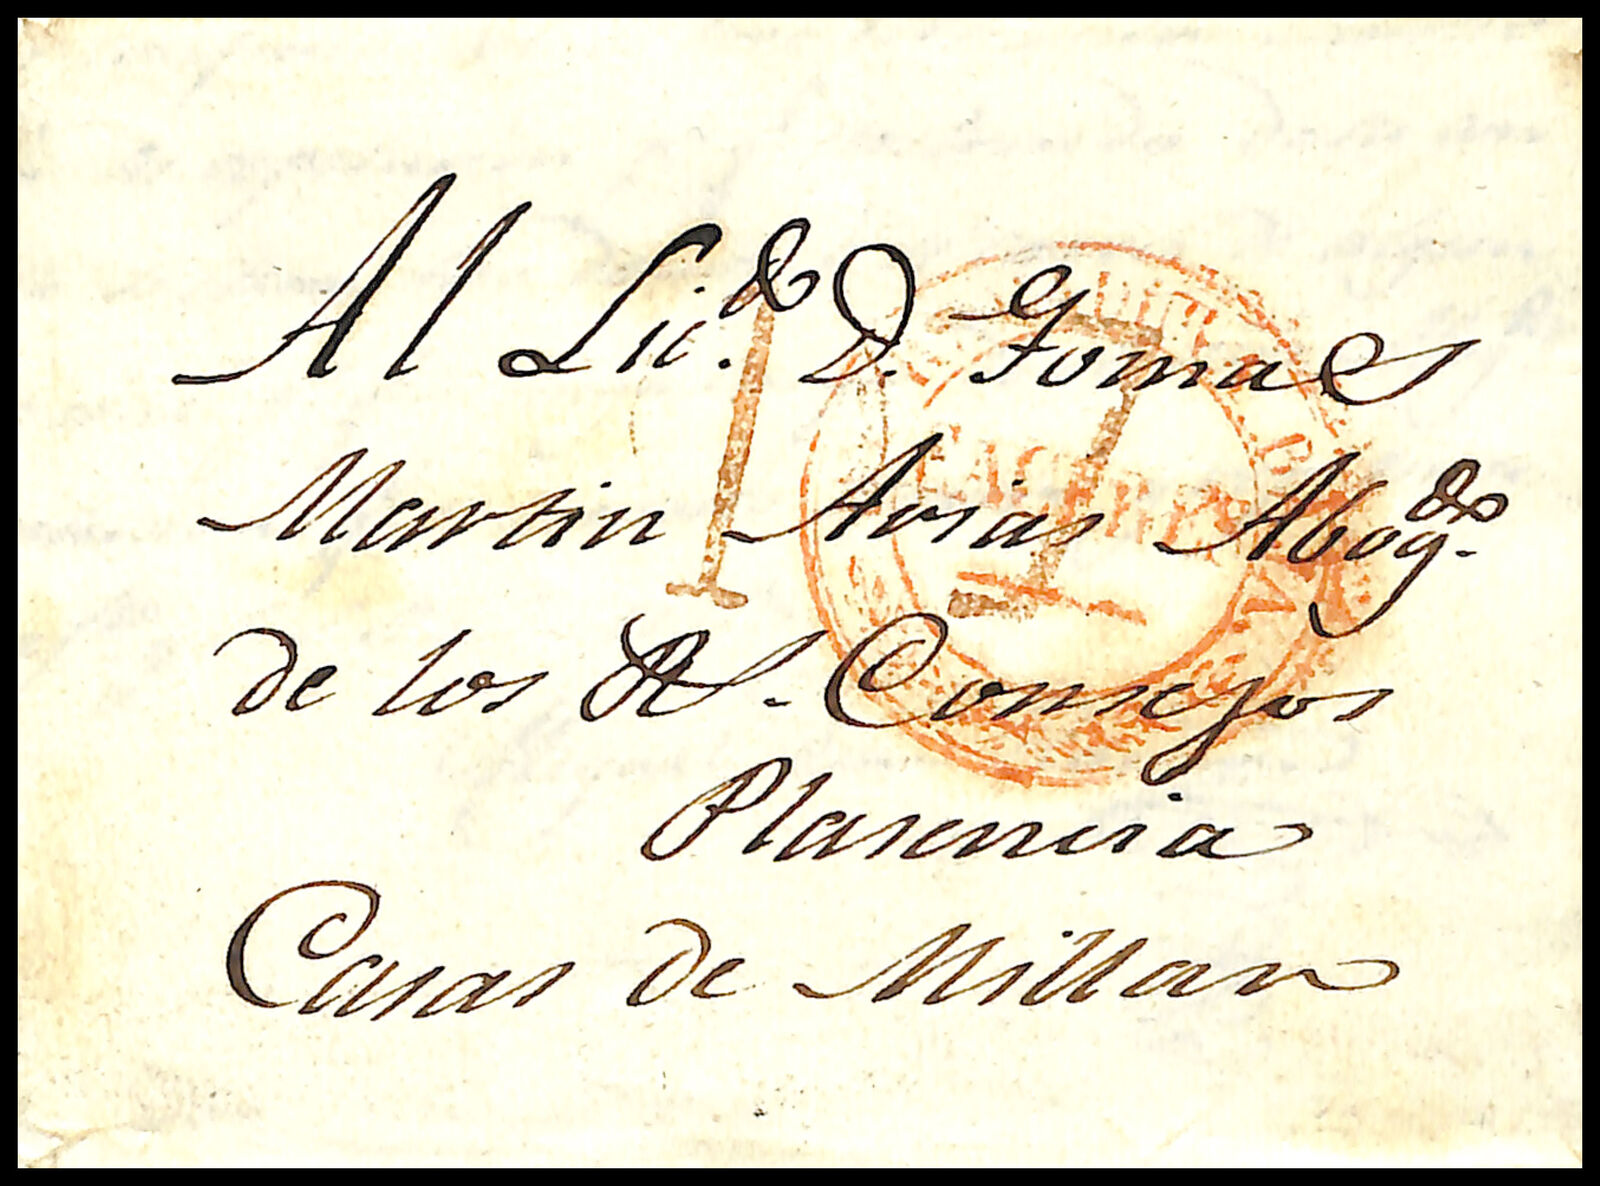 Al Lic.do D. Tomas
Martin Arias Abog.do
de los Rs. Consejos
Plasencia
Casas de Millan
CACERES